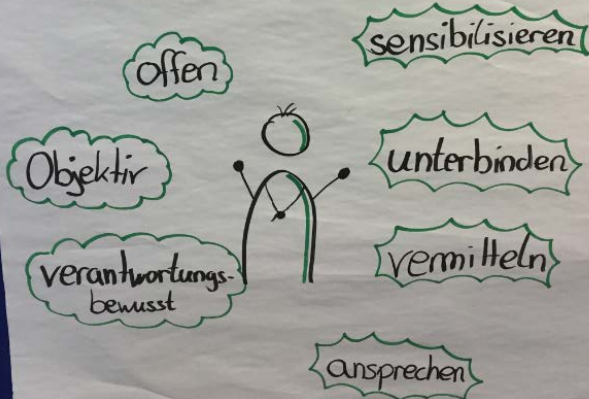 offen
Objektiv
verantwortungs-
bewusst
sensibilisieren
unterbinden
vermitteln
ansprechen